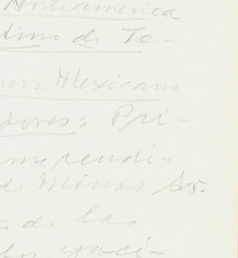 Norteamérica
timo de Te-
Mexicano
dores: Pri-
emprendi-
de Minas Sr.
de las
yaci-